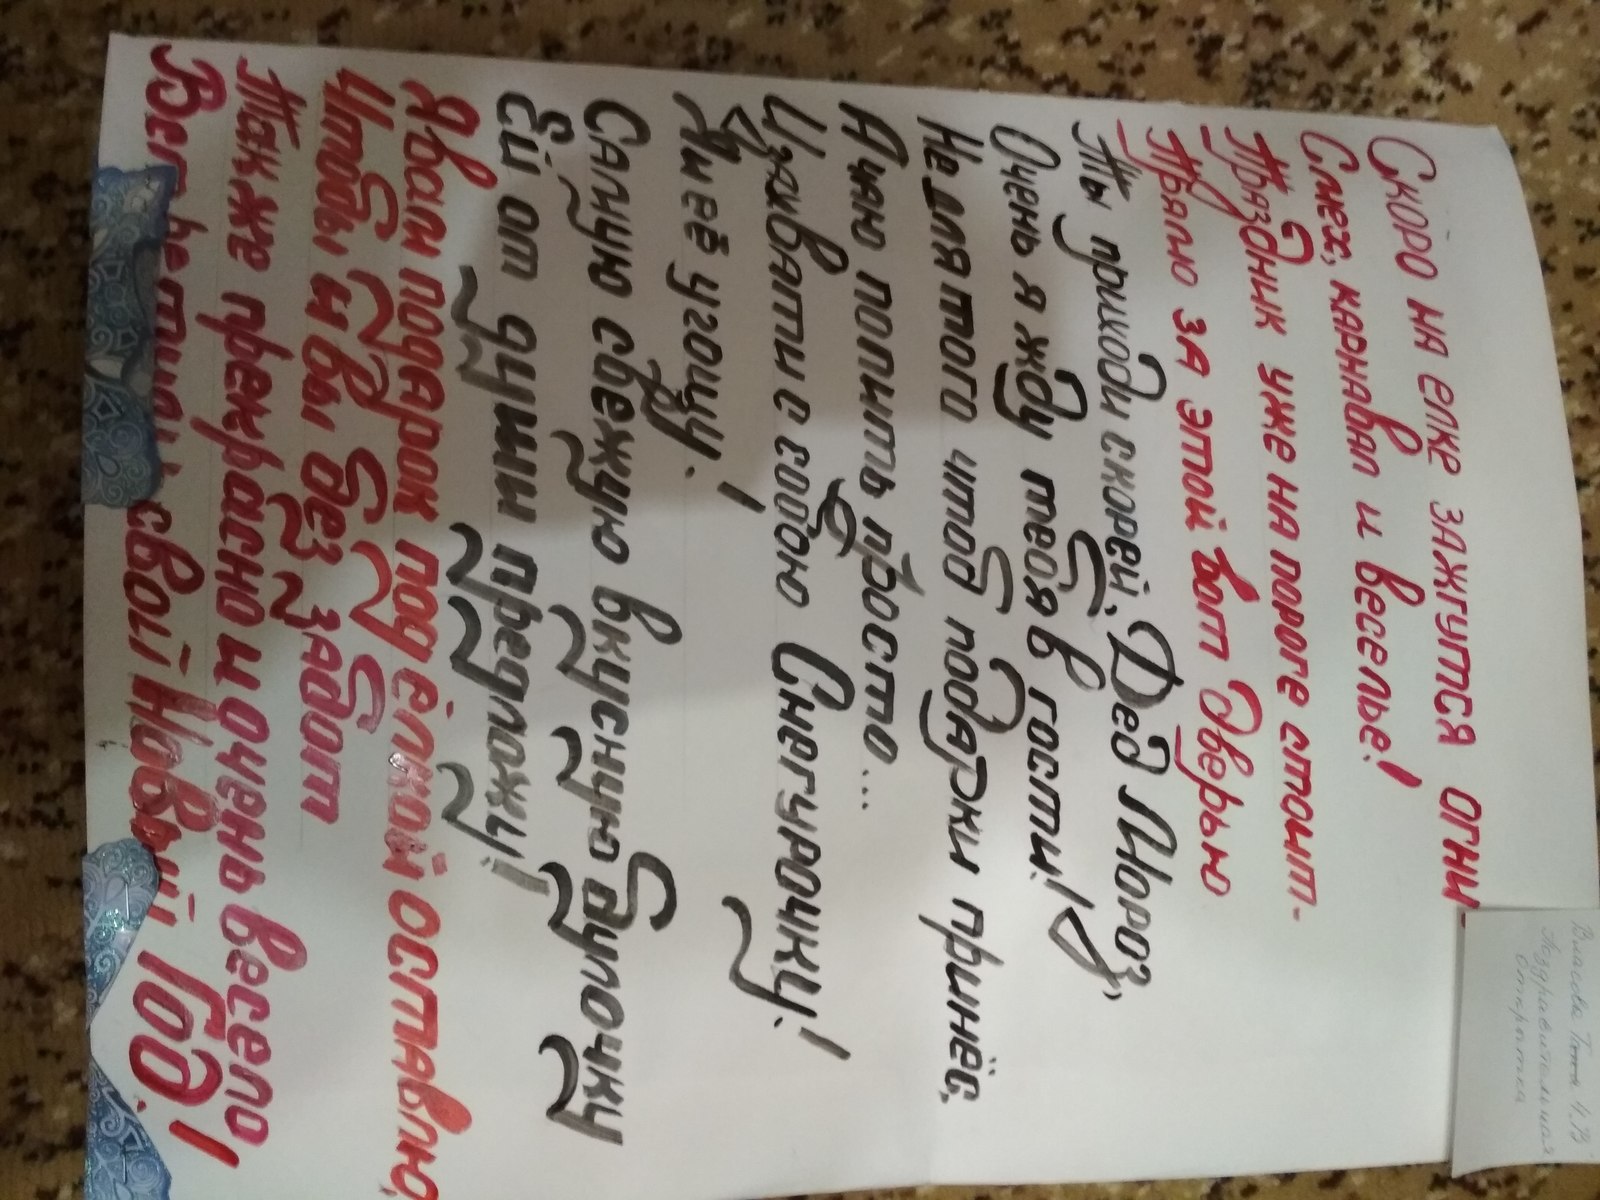 Скоро на елке зажгутся огни
Смех, карнавал и веселье!
Праздник уже на пороге стоит-
Прямо за этой вот дверью
Ты приходи скорей, Дед Мороз,
Очень я жду тебя в гости!
Не для того чтоб подарки принёс,
А чаю попить просто...
И захвати с собою Снегурочку!
Я и её угощу!
Самую свежую вкусную булочку
Ей от души предложу!
Я вам подарок под ёлкой оставлю,
Чтобы и вы без забот
Также прекрасно и очень весело
Встретили свой Новый Год!
Власова 4-В
Поздравительная
открытка